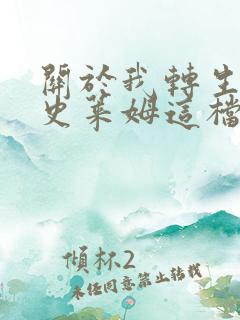 關於我轉生
史萊姆這檔
傾杯2
未任同意禁止轉載